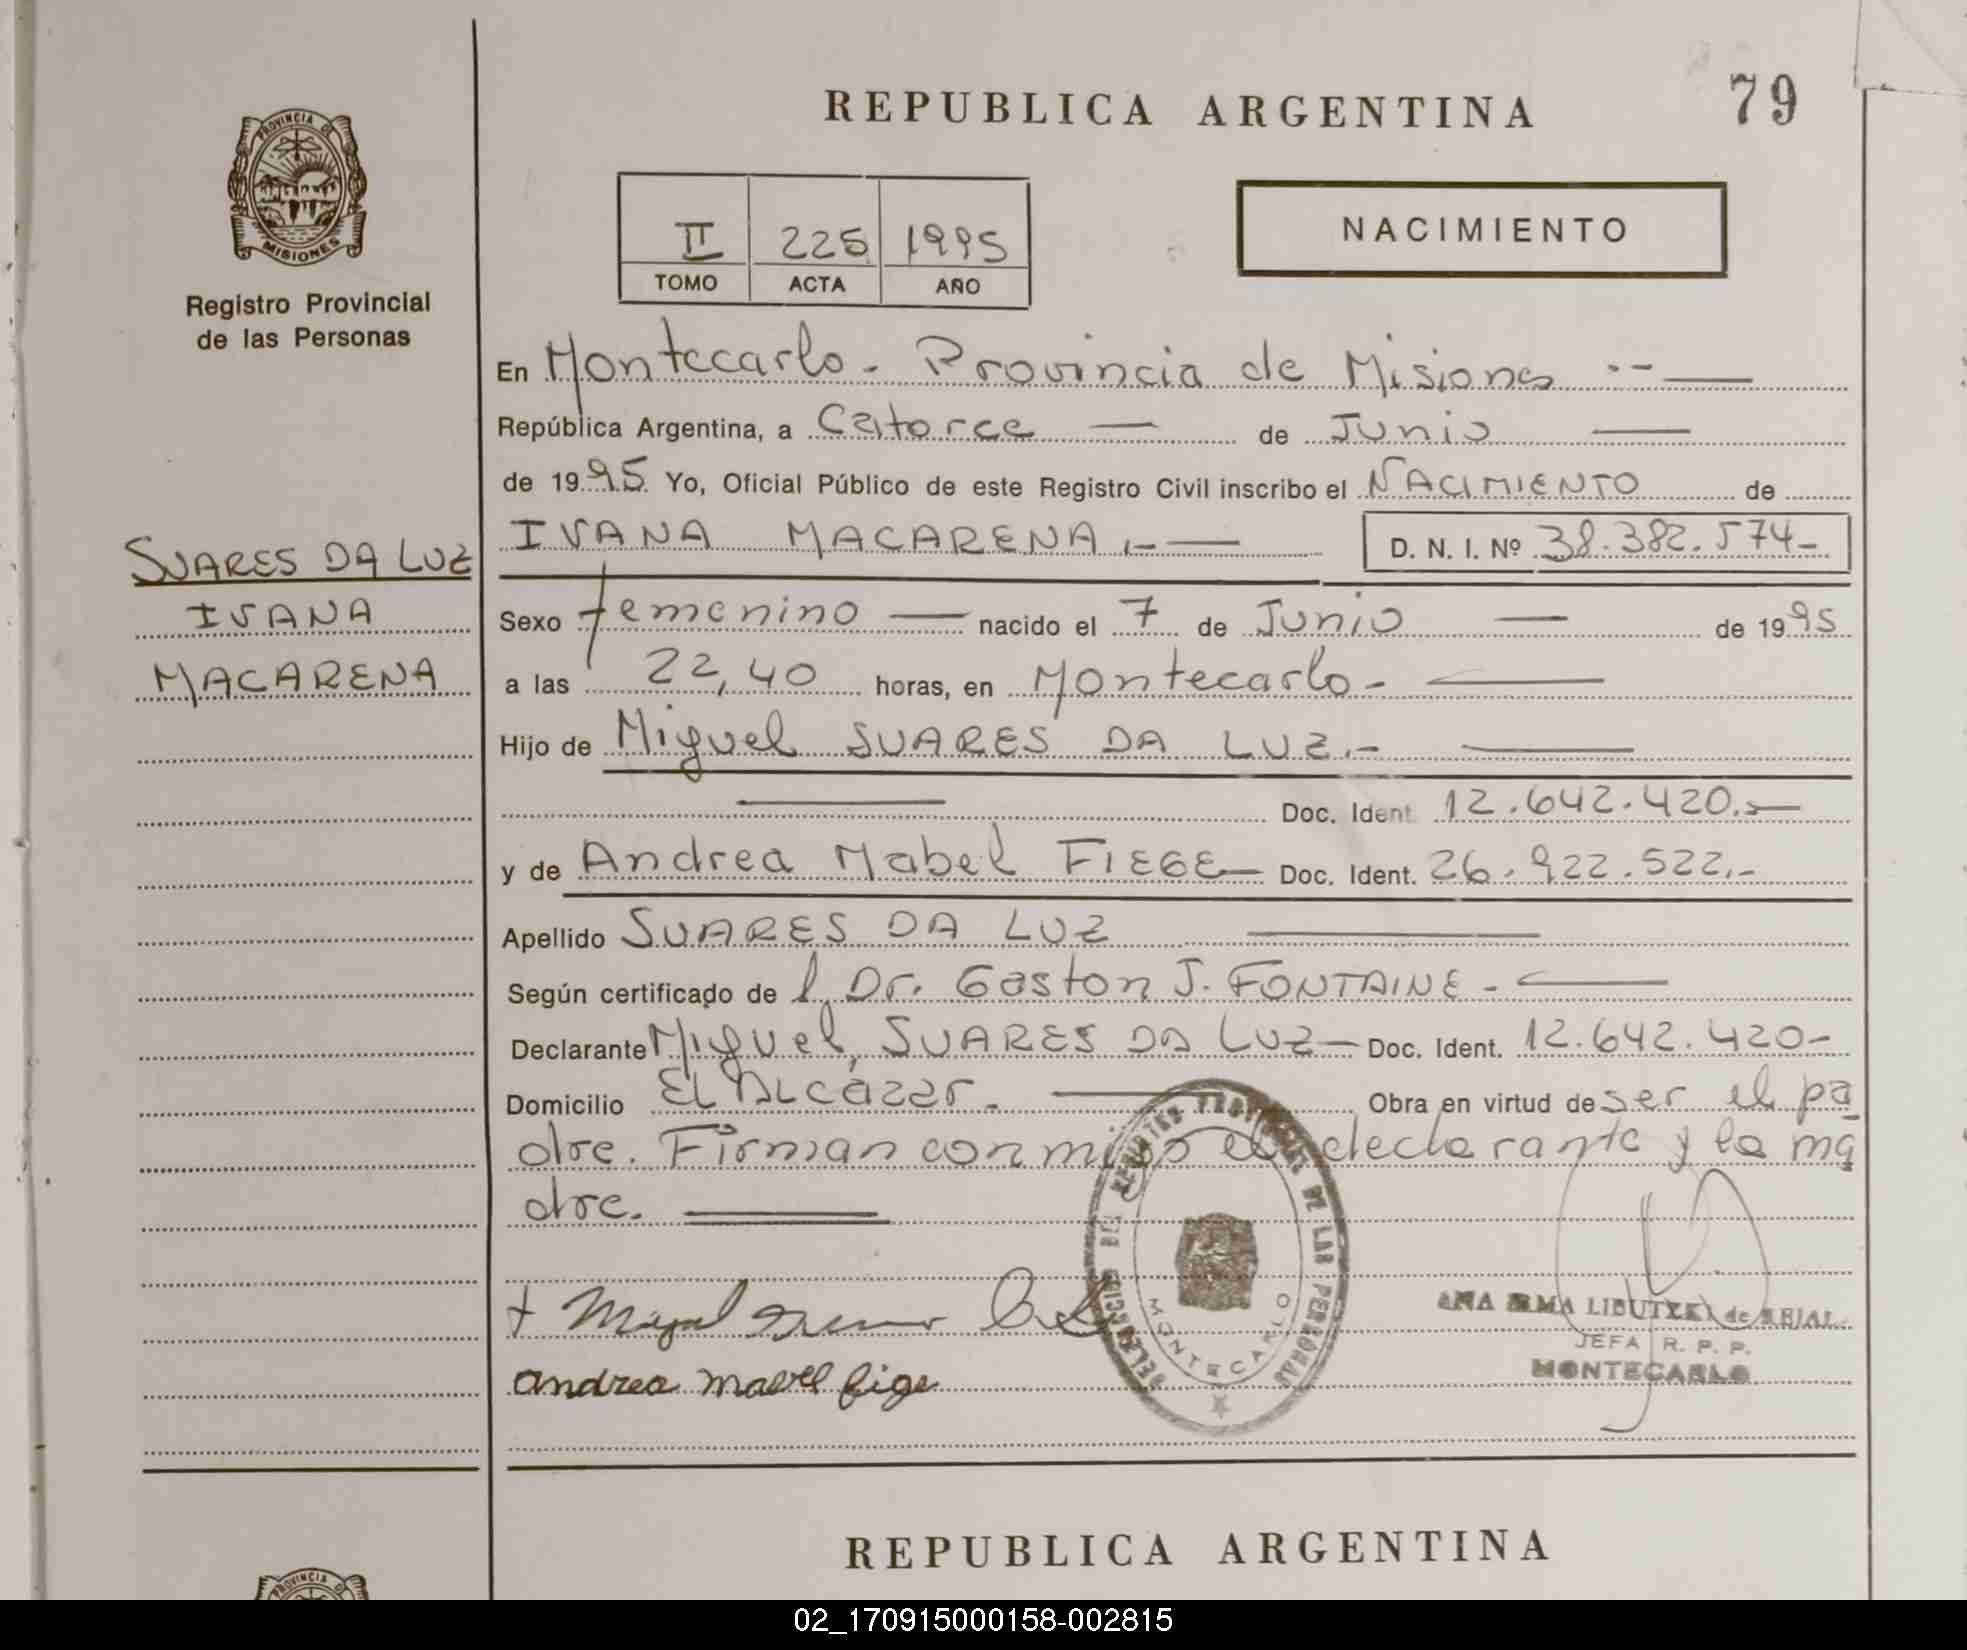 REPUBLICA ARGENTINA
79
PROVINCIA DE
MISIONES
Registro Provincial
de las Personas
II 225 1995
TOMO ACTA AÑO
NACIMIENTO
En Montecarlo.- Provincia de Misiones
República Argentina, a Catorce de Junio
de 1995 Yo, Oficial Público de este Registro Civil inscribo el NACIMIENTO de
SUARES DA LUZ
IVANA
MACARENA
IVANA MACARENA.- D. N. I. Nº 38.382.574-
Sexo femenino nacido el 7 de Junio de 1995
a las 22,40 horas, en Montecarlo-
Hijo de Miguel SUARES DA LUZ.-
Doc. Ident. 12.642.420.-
y de Andrea Mabel FIEGE- Doc. Ident. 26.922.522.-
Apellido SUARES DA LUZ
Según certificado de l Dr. Gaston J. FONTAINE.-
Declarante Miguel, SUARES DA LUZ- Doc. Ident. 12.642.420-
Domicilio El Alcázar.- Obra en virtud de ser el pa
dre. Firman conmigo el declarante y la ma
dre.
Miguel
andrea mabel fige
DELEGACION DEL REGISTRO PROVINCIAL DE LAS PERSONAS
MONTECARLO
ANA IRMA de
JEFA R. P. P.
MONTECARLO
REPUBLICA ARGENTINA
PROVINCIA DE
02_170915000158-002815